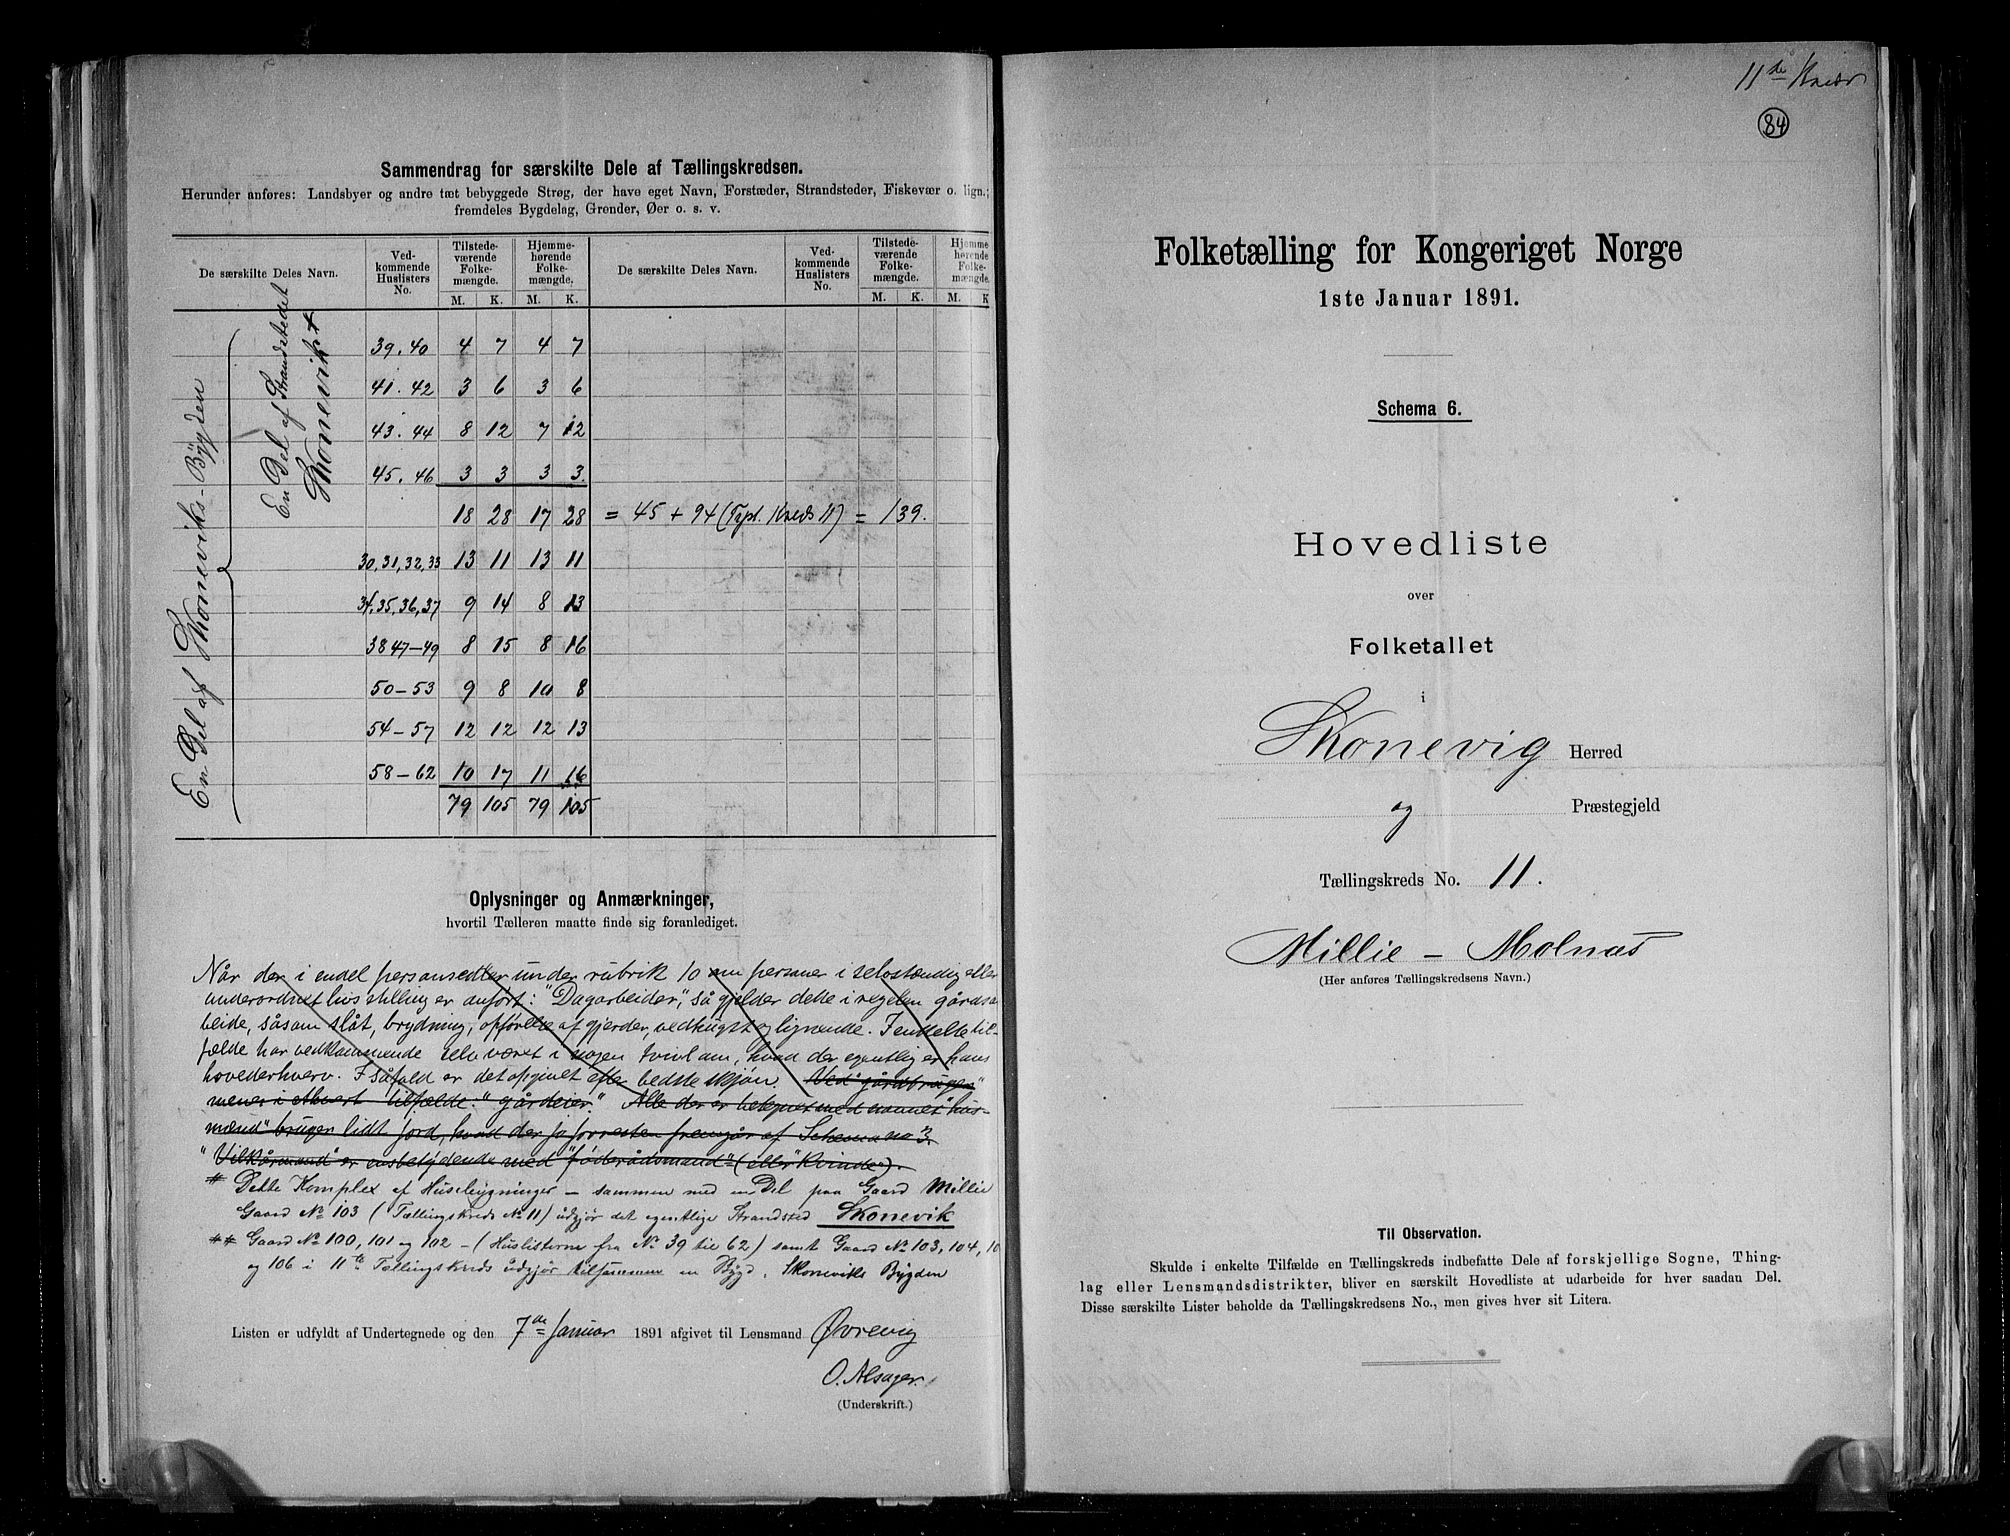 Sammendrag for særskilte Dele af Tællingskredsen.
Herunder anføres: Landsbyer og andre tæt bebyggede Strøg, der have eget Navn, Forstæder, Strandsteder, Fiskevær o. lign.;
fremdeles Bygdelag, Grender, Øer o. s. v.
De særskilte Deles Navn. Ved-kommende Huslisters No. Tilstede-værende Folke-mængde. Hjemme-hørende Folke-mængde. De særskilte Deles Navn. Ved-kommende Huslisters No. Tilstede-værende Folke-mængde. Hjemme hørende Folke-mængde.
M. K. M. K. M. K. M. K
En Del af Skoneviks-Bygden
En Del af Strandstedet
Skonevik +
39.40 4 7 4 7
41.42 3 6 3 6
43.44 8 12 7 12
45.46 3 3 3 3.
18 28 17 28 = 45 + 94 (Tgst. Kreds 11) = 139.
30,31,32,33 13 11 13 11
34,35,36,37 9 14 8 13
38 47-49 8 15 8 16
50-53 9 8 10 8
54-57 12 12 12 13
58-62 10 17 11 16
79 105 79 105
Oplysninger og Anmærkninger,
hvortil Tælleren maatte finde sig foranlediget.
Når der i endel personsedler under rubrik 10 om personer i selvstændig eller
underordnet livsstilling er anført: "Dagarbeider", så gjelder dette i regelen gårdsar
beide, såsom slåt, brydning, opførelse af gjerder, vedhugst og lignende. I enkelte til-
fælde har vedkommende selv været i nogen tvivl om, hvad der egentlig er hans
hovederhverv. I såfald er det opgivet efter bedste skjøn. Ved "gårdbruger"
menes i ethvert tilfælde: "gårdeier". Alle der er betegnet med navnet "hus-
mænd" bruger lidt jord, hvad der jo forresten fremgår af Schema no 3.
"Vilkårmand" er ensbetydende med "føderådsmand" (eller "Kvinde").
* Dette Komplex af Husebygninger – sammen med en Del paa Gaard Millie
Gaard No 103 (Tællingskreds No 11) udgjør det egentlige Strandsted Skonevik
** Gaard No 100, 101 og 102 – (Huslisterne fra No 39 til 62) samt Gaard No 103, 104, 10
og 106 i 11te Tællingskreds udgjør tilsammen en Bygd. Skoneviks Bygden
Listen er udfyldt af Undertegnede og den 7de Januar 1891 afgivet til Lensmand Øvrevig
O. Alsager.
(Underskrift.)
11de Kreds
84
Folketælling for Kongeriget Norge
1ste Januar 1891.
Schema 6.
Hovedliste
over
Folketallet
i
Skonevig Herred
og Præstegjeld
Tællingskreds No. 11.
Millie – Molnæs
(Her anføres Tællingskredsens Navn.)
Til Observation.
Skulde i enkelte Tilfælde en Tællingskreds indbefatte Dele af forskjellige Sogne, Thing-
lag eller Lensmandsdistrikter, bliver en særskilt Hovedliste at udarbeide for hver saadan Del.
Disse særskilte Lister beholde da Tællingskredsens No., men gives hver sit Litera.